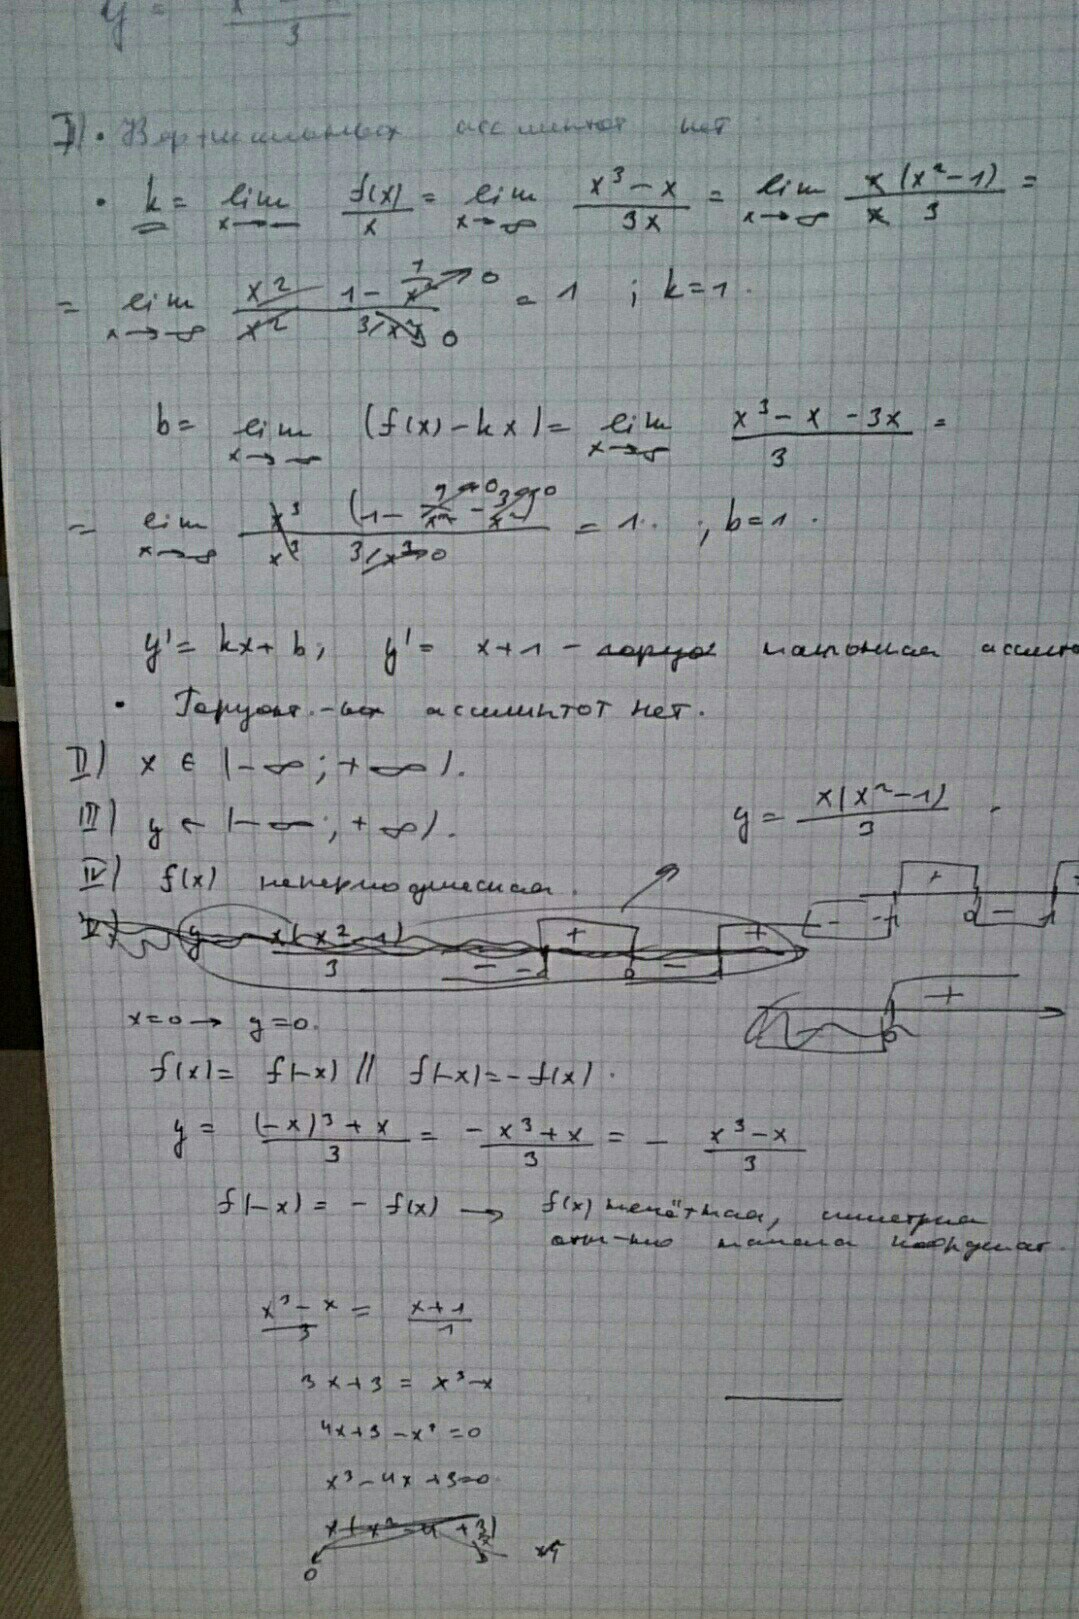 y = x³ - x / 3
I) • Вертикальных ассимптот нет
• k = lim x→-∞ f(x)/x = lim x→-∞ (x³ - x)/3x = lim x→-∞ x(x²-1)/x 3 =
= lim x→-∞ x²/x² (1 - 1/x² → 0)/(3/x² → 0) = 1 ; k=1.
b = lim x→-∞ (f(x) - kx) = lim x→-∞ (x³ - x - 3x)/3 =
= lim x→-∞ x³/x³ (1 - 1/x² → 0 - 3/x² → 0)/(3/x³ → 0) = 1. ; b=1.
y' = kx + b; y' = x+1 - наклонная ассимпто
• Горизонт.-ых ассимптот нет.
II) x ∈ (-∞; +∞).
III) y ∈ (-∞; +∞). y = x(x²-1)/3
IV) f(x) непериодическая.
V) y x(x²-1)/3 + - + - + - + - 0
x=0 → y=0. + 0
f(x) = f(-x) // f(-x) = -f(x).
y = ((-x)³ + x)/3 = (-x³ + x)/3 = - (x³ - x)/3
f(-x) = - f(x) → f(x) нечётная, симетрия
отн-но начала координат.
(x³ - x)/3 = (x+1)/1
3x+3 = x³-x
4x+3-x³=0
x³-4x+3=0
0